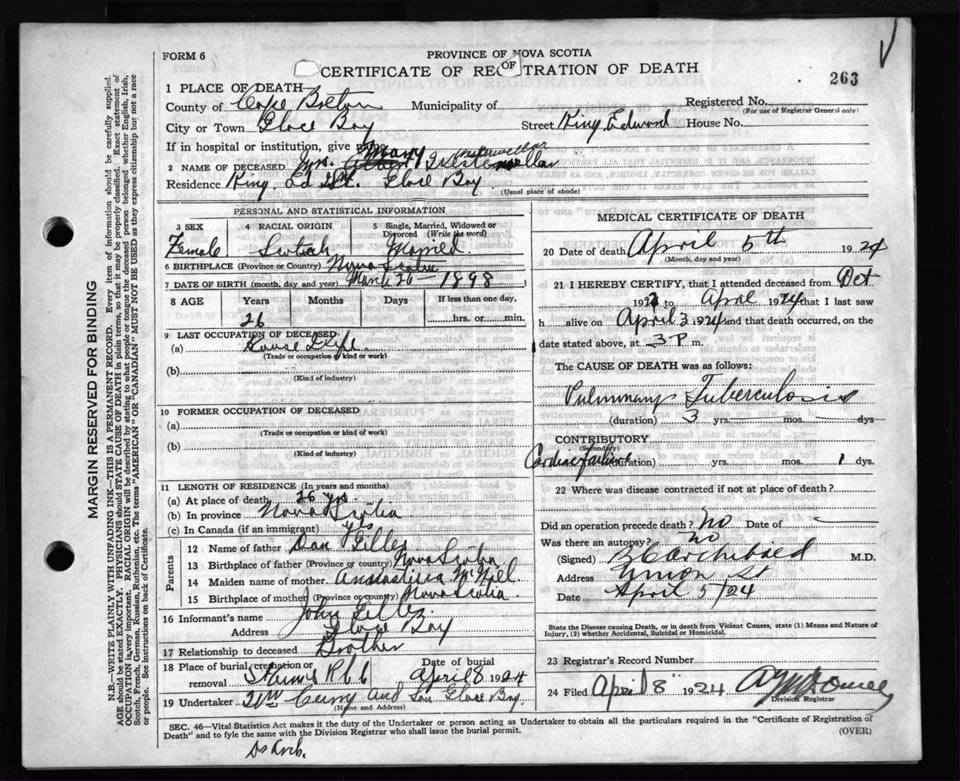 FORM 6
PROVINCE OF NOVA SCOTIA
CERTIFICATE OF REG OF TRATION OF DEATH
263
1 PLACE OF DEATH
County of Cape Breton Municipality of Registered No.
(For use of Registrar General only)
City or Town Glace Bay Street King Edward House No.
If in hospital or institution, give
2 NAME OF DECEASED Mrs. Mary
Residence King Ed St. Glace Bay
(Usual place of abode)
PERSONAL AND STATISTICAL INFORMATION
3 SEX 4 RACIAL ORIGIN 5 Single, Married, Widowed or Divorced (Write the word)
Female Scotish Married
6 BIRTHPLACE (Province or Country) Nova Scotia
7 DATE OF BIRTH (month, day and year) March 26 - 1898
8 AGE Years Months Days If less than one day,
26 hrs. or min.
9 LAST OCCUPATION OF DECEASED
(a) House Wife
(Trade or occupation or kind or work)
(b)
(Kind of industry)
10 FORMER OCCUPATION OF DECEASED
(a)
(Trade or occupation or kind of work)
(b)
(Kind of industry)
11 LENGTH OF RESIDENCE (In years and months)
(a) At place of death 26 yrs.
(b) In province Nova Scotia
(c) In Canada (if an immigrant) yes
Parents
12 Name of father Dan Gillis
13 Birthplace of father (Province or country) Nova Scotia
14 Maiden name of mother McNeil
15 Birthplace of mother (Province or country) Nova Scotia
16 Informant's name John Gillis
Address Glace Bay
17 Relationship to deceased Brother
18 Place of burial, cremation or removal Date of burial
April 8 1924
19 Undertaker Wm Curry and Son Glace Bay.
(Name and Address)
MEDICAL CERTIFICATE OF DEATH
20 Date of death April 5th 1924
(Month, day and year)
21 I HEREBY CERTIFY, that I attended deceased from Oct
192 to April 1924 that I last saw
h alive on April 3 1924 and that death occurred, on the
date stated above, at 3 P. m.
The CAUSE OF DEATH was as follows:
Pulmonary Tuberculosis
(duration) 3 yrs. mos. dys.
CONTRIBUTORY
(Secondary)
Cardiac failure (duration) yrs. mos. 1 dys.
22 Where was disease contracted if not at place of death?
Did an operation precede death? No Date of
Was there an autopsy? No
(Signed) Archibald M.D.
Address Union St
Date April 5/24
State the Disease causing Death, or in death from Violent Causes, state (1) Means and Nature of Injury, (2) whether Accidental, Suicidal or Homicidal.
23 Registrar's Record Number
24 Filed April 8 1924
Division Registrar
SEC. 46—Vital Statistics Act makes it the duty of the Undertaker or person acting as Undertaker to obtain all the particulars required in the "Certificate of Registration of
Death" and to fyle the same with the Division Registrar who shall issue the burial permit.
(OVER)
MARGIN RESERVED FOR BINDING
N.B.—WRITE PLAINLY WITH UNFADING INK—THIS IS A PERMANENT RECORD. Every item of information should be carefully supplied.
AGE should be stated EXACTLY. PHYSICIANS should STATE CAUSE OF DEATH in plain terms, so that it may be properly classified. Exact statement of
OCCUPATION is very important. RACIAL ORIGIN will be described by stating to what people or tongue the deceased person belonged whether English, Irish,
Scotch, French, German, Russian, Ruthenian, etc. The terms "AMERICAN" OR "CANADIAN" MUST NOT BE USED as they express citizenship but not a race
or people. See instructions on back of Certificate.